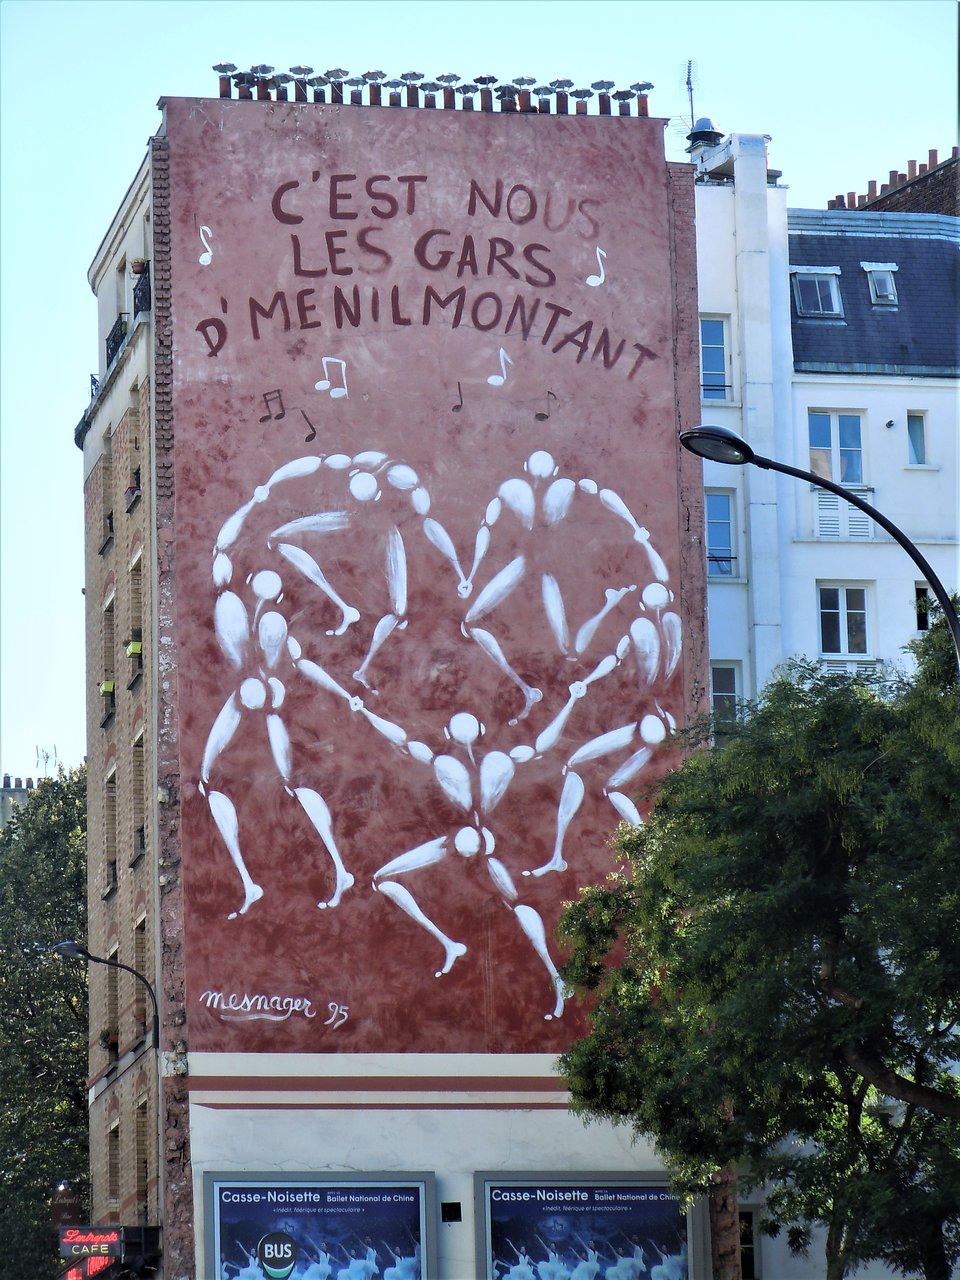 C'EST NOUS
LES GARS
D'MENILMONTANT
mesnager 95
Casse-Noisette Ballet National de Chine
«Inédit, féérique et spectaculaire»
Casse-Noisette Ballet National de Chine
«Inédit, féérique et spectaculaire»
BUS
L'entrepots
CAFE